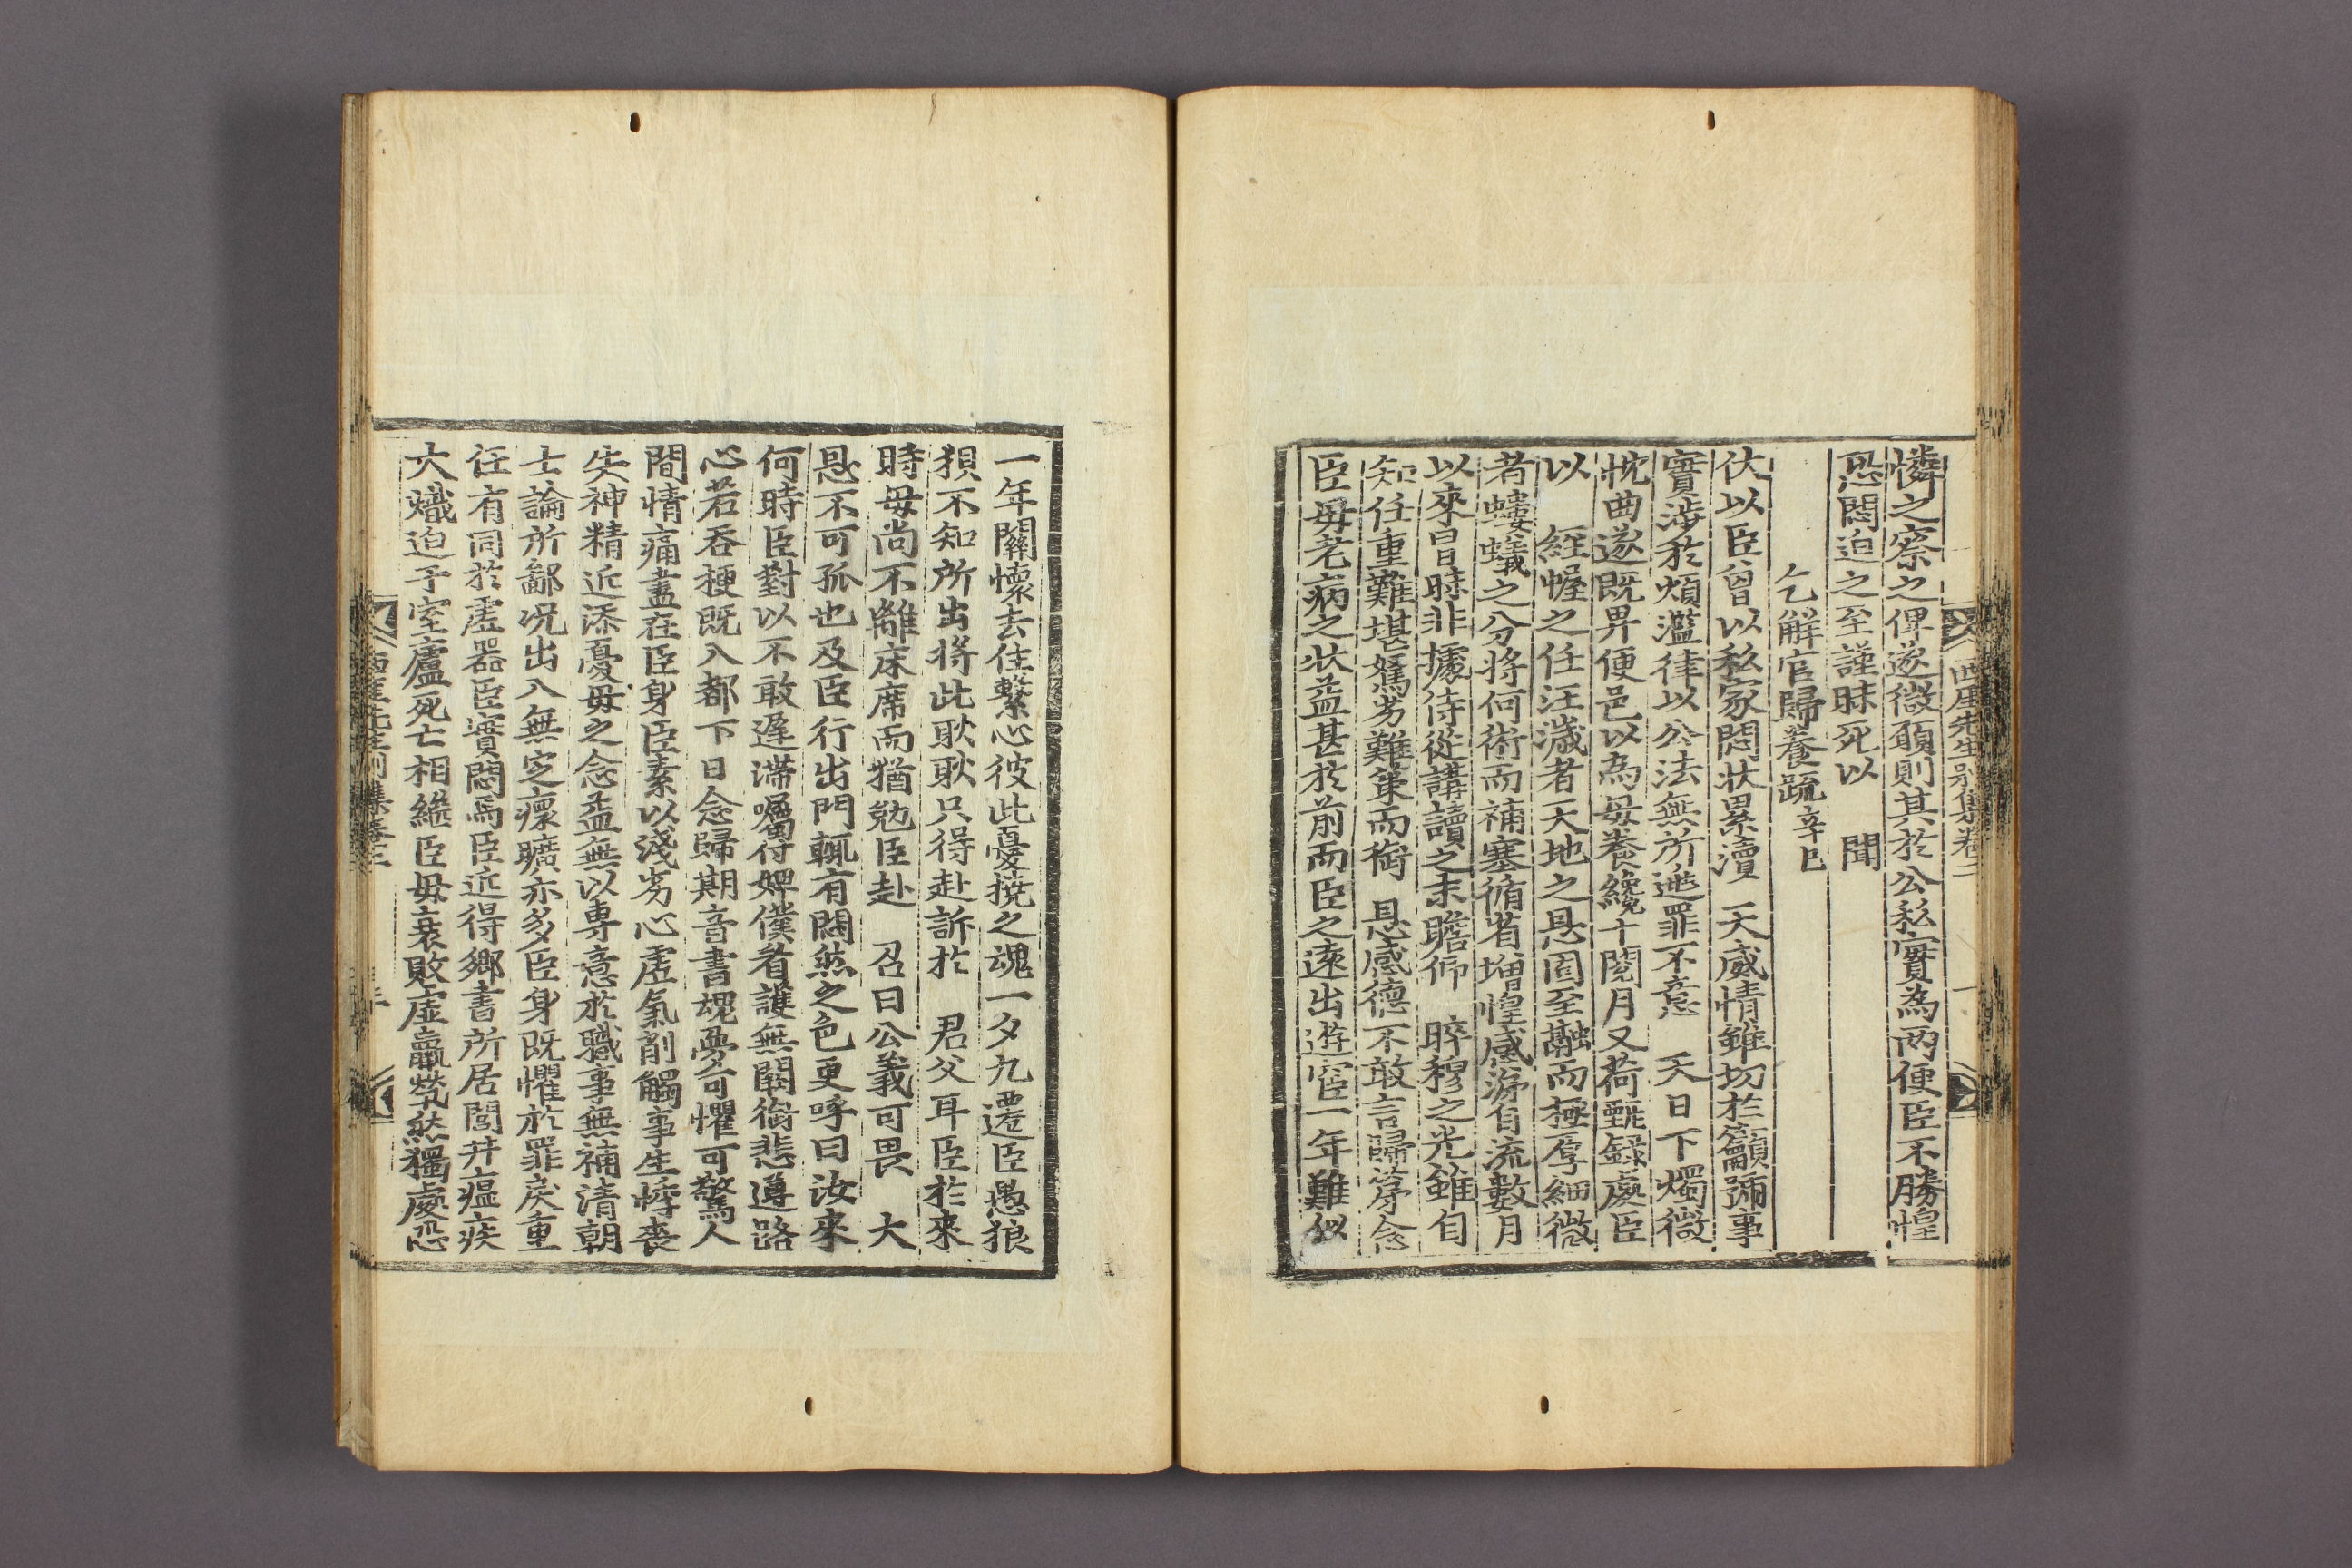 西厓先生別集卷二
憐之察之俾遂微願則其於公私實為兩便臣不勝惶
恐悶迫之至謹昧死以　聞
乞解官歸養疏辛巳
伏以臣曾以私家悶狀累瀆　天威情雖切於籲號事
實涉於煩瀆律以公法無所逃罪不意　天日下燭微
忱曲遂既畀便邑以為母養纔十閱月又荷甄錄處臣
以　經幄之任汪濊者天地之恩固至融而極厚細微
者螻蟻之分將何術而補塞循省增惶感涕自流數月
以來日昃時非據侍從講讀之末瞻仰　睟穆之光雖自
知任重難堪駑劣難策而銜　恩感德不敢言歸第念
臣母老病之狀益甚於前而臣之遠出遊宦一年難似
一年關懷去住繫心彼此憂撓之魂一夕九遷臣愚狼
狽不知所出將此耿耿只得赴訴於　君父耳臣於來
時母尚不離床席而猶勉臣赴　召曰公義可畏　大
恩不可孤也及臣行出門輒有悶然之色更呼曰汝來
何時臣對以不敢遲滯囑付婢僕看護無闕銜悲遵路
心若吞梗既入都下日念歸期音書魂夢可懼可驚人
間情痛盡在臣身臣素以淺劣心虛氣削觸事生悸喪
失神精近添憂母之念益無以專意於職事無補清朝
士論所鄙况出入無定瘝曠亦多臣身既懼於罪戾重
任有同於虛器臣實悶焉臣近得鄉書所居閭井瘟疾
大熾迫于室廬死亡相繼臣母衰敗虛羸煢然獨處恐
西厓先生別集卷二